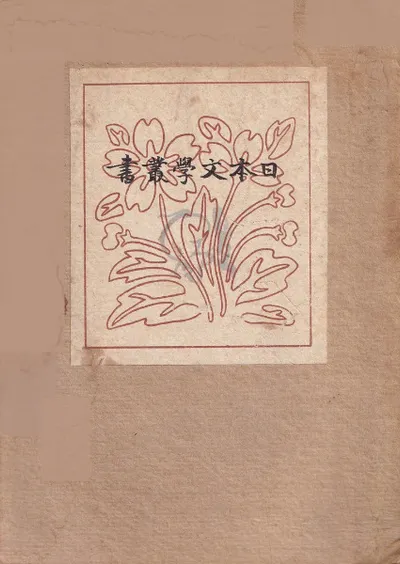 日本文學叢書